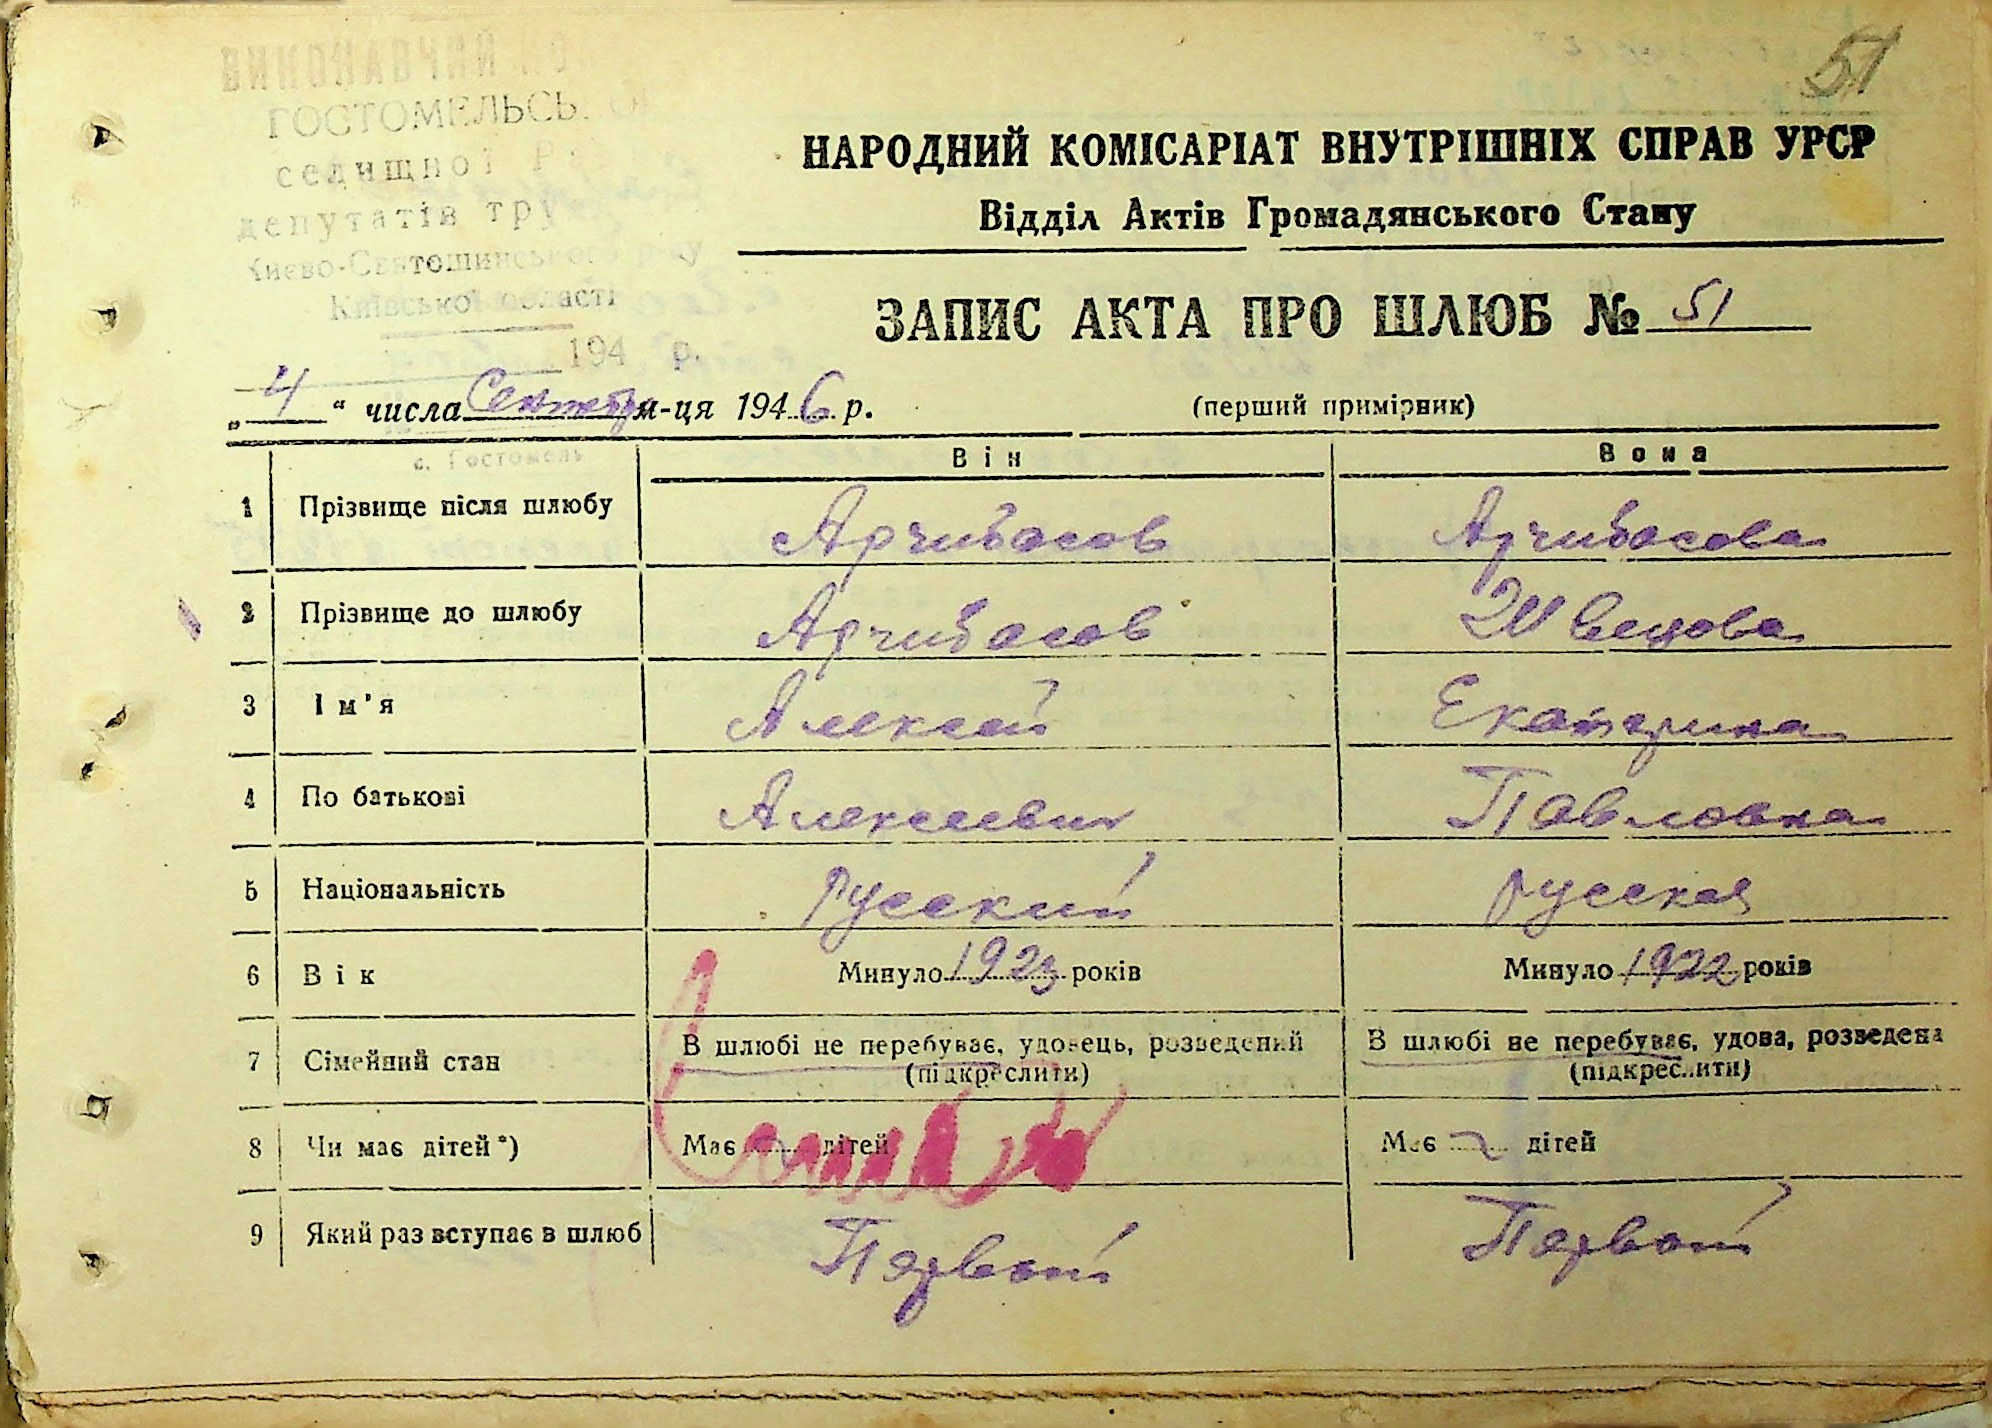 51
ВИКОНАВЧИЙ
ГОСТОМЕЛЬСЬ
селищної
депутатів тру
Києво-Святошинського р-ну
Київської області
194 р.
с. Гостомель
НАРОДНИЙ КОМІСАРІАТ ВНУТРІШНІХ СПРАВ УРСР
Відділ Актів Громадянського Стану
ЗАПИС АКТА ПРО ШЛЮБ № 51
„4“ числа Сентября м-ця 1946 р.
(перший примірник)
Він Вона
1 Прізвище після шлюбу Арчибасов Арчибасова
2 Прізвище до шлюбу Арчибасов Швецова
3 Ім'я Алексей Екатерина
4 По батькові Алексеевич Павловна
5 Національність Русский русская
6 Вік Минуло 1923 років Минуло 1922 років
7 Сімейний стан В шлюбі не перебуває, удовець, розведений (підкреслити) В шлюбі не перебуває, удова, розведена (підкреслити)
8 Чи має дітей*) Має дітей Має дітей
9 Який раз вступає в шлюб Первый Первый